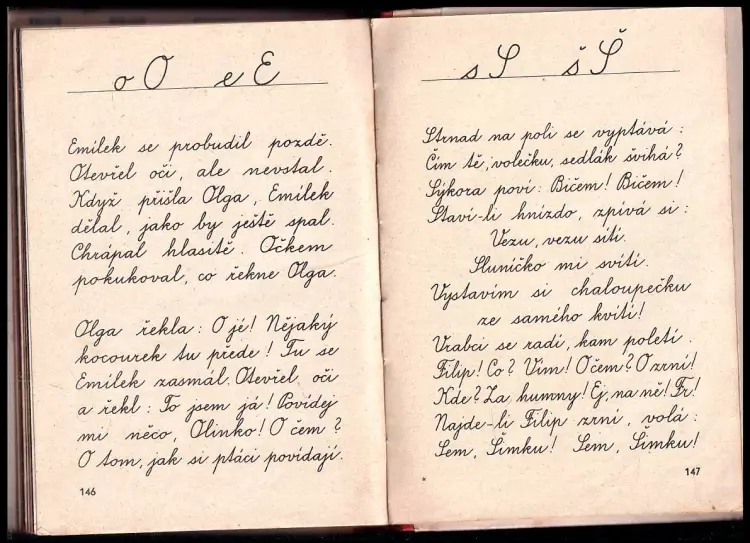 o O e E
Emilek se probudil pozdě.
Otevřel oči, ale nevstal.
Když přišla Olga, Emilek
dělal, jako by ještě spal.
Chrápal hlasitě. Očkem
pokukoval, co řekne Olga.
Olga řekla: O jé! Nějaký
kocourek tu přede! Tu se
Emilek zasmál. Otevřel oči
a řekl: To jsem já! Povídej
mi něco, Olinko! O čem?
O tom, jak si ptáci povídají.
146
s S š Š
Strnad na poli se vyptává:
Čím tě, volečku, sedlák švihá?
Sýkora poví: Bičem! Bičem!
Staví-li hnízdo, zpívá si:
Vezu, vezu síti.
Sluníčko mi svítí.
Vystavím si chaloupečku
ze samého kvítí!
Vrabci se radí, kam poletí.
Filip! Co? Vím! O čem? O zrní!
Kde? Za humny! Ej, na ně! Fr!
Najde-li Filip zrní, volá:
Sem, Šimku! Sem, Šimku!
147